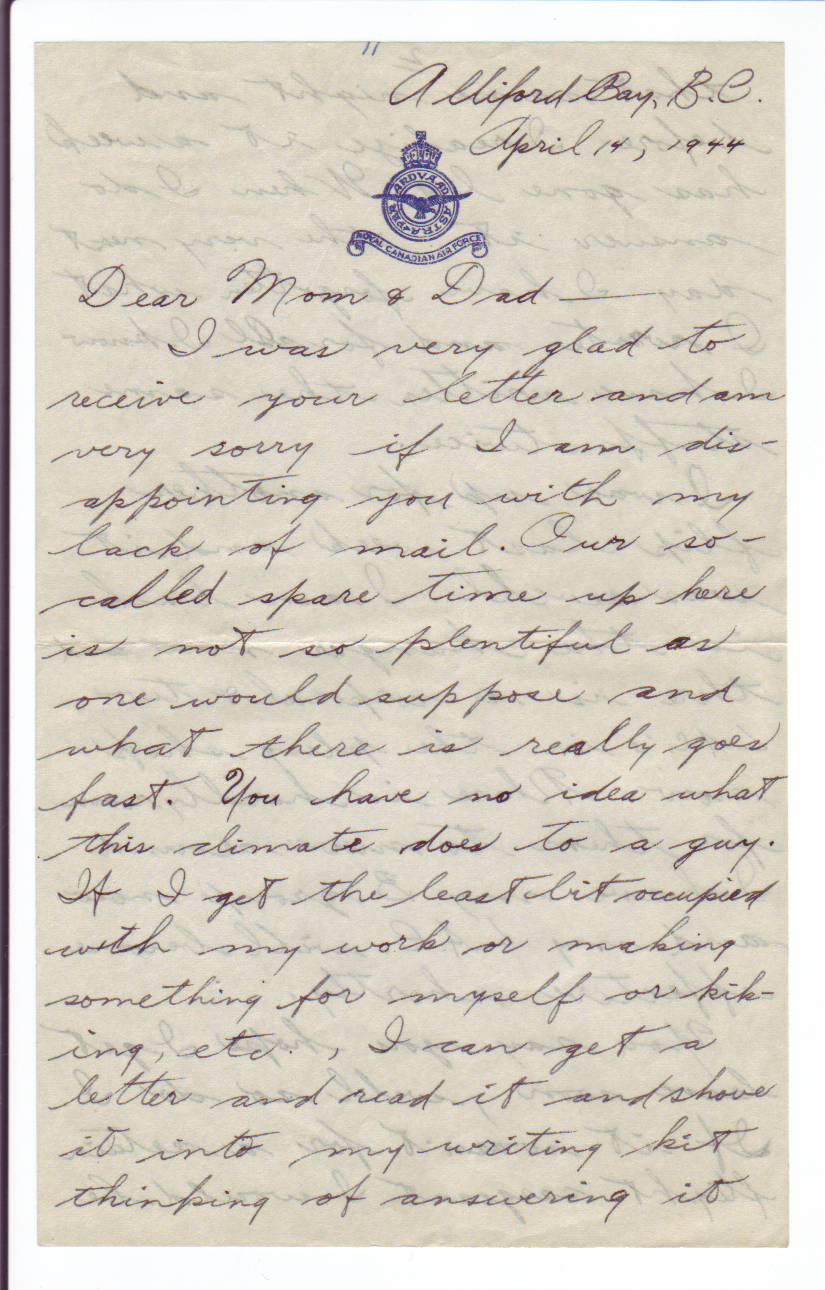 Alliford Bay, B.C.
April 14, 1944
PER ARDVA AD ASTRA
ROYAL CANADIAN AIR FORCE
Dear Mom & Dad —
I was very glad to
receive your letter and am
very sorry if I am dis-
appointing you with my
lack of mail. Our so-
called spare time up here
is not so plentiful as
one would suppose and
what there is really goes
fast. You have no idea what
this climate does to a guy.
If I get the least bit occupied
with my work or making
something for myself or hik-
ing, etc., I can get a
letter and read it and shove
it into my writing kit
thinking of answering it